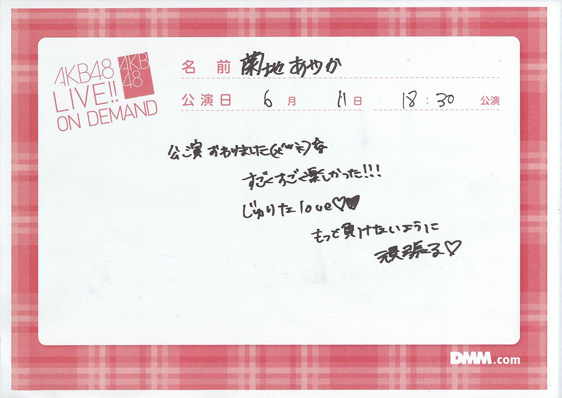 AKB48
LIVE!!
ON DEMAND
AKB
48
名前 菊地あやか
公演日 6月 11日 18:30 公演
公演おわりました
すごくすごく楽しかった!!!
じゅりたんlove♡♥
もっと負けないように
頑張る♡
DMM.com